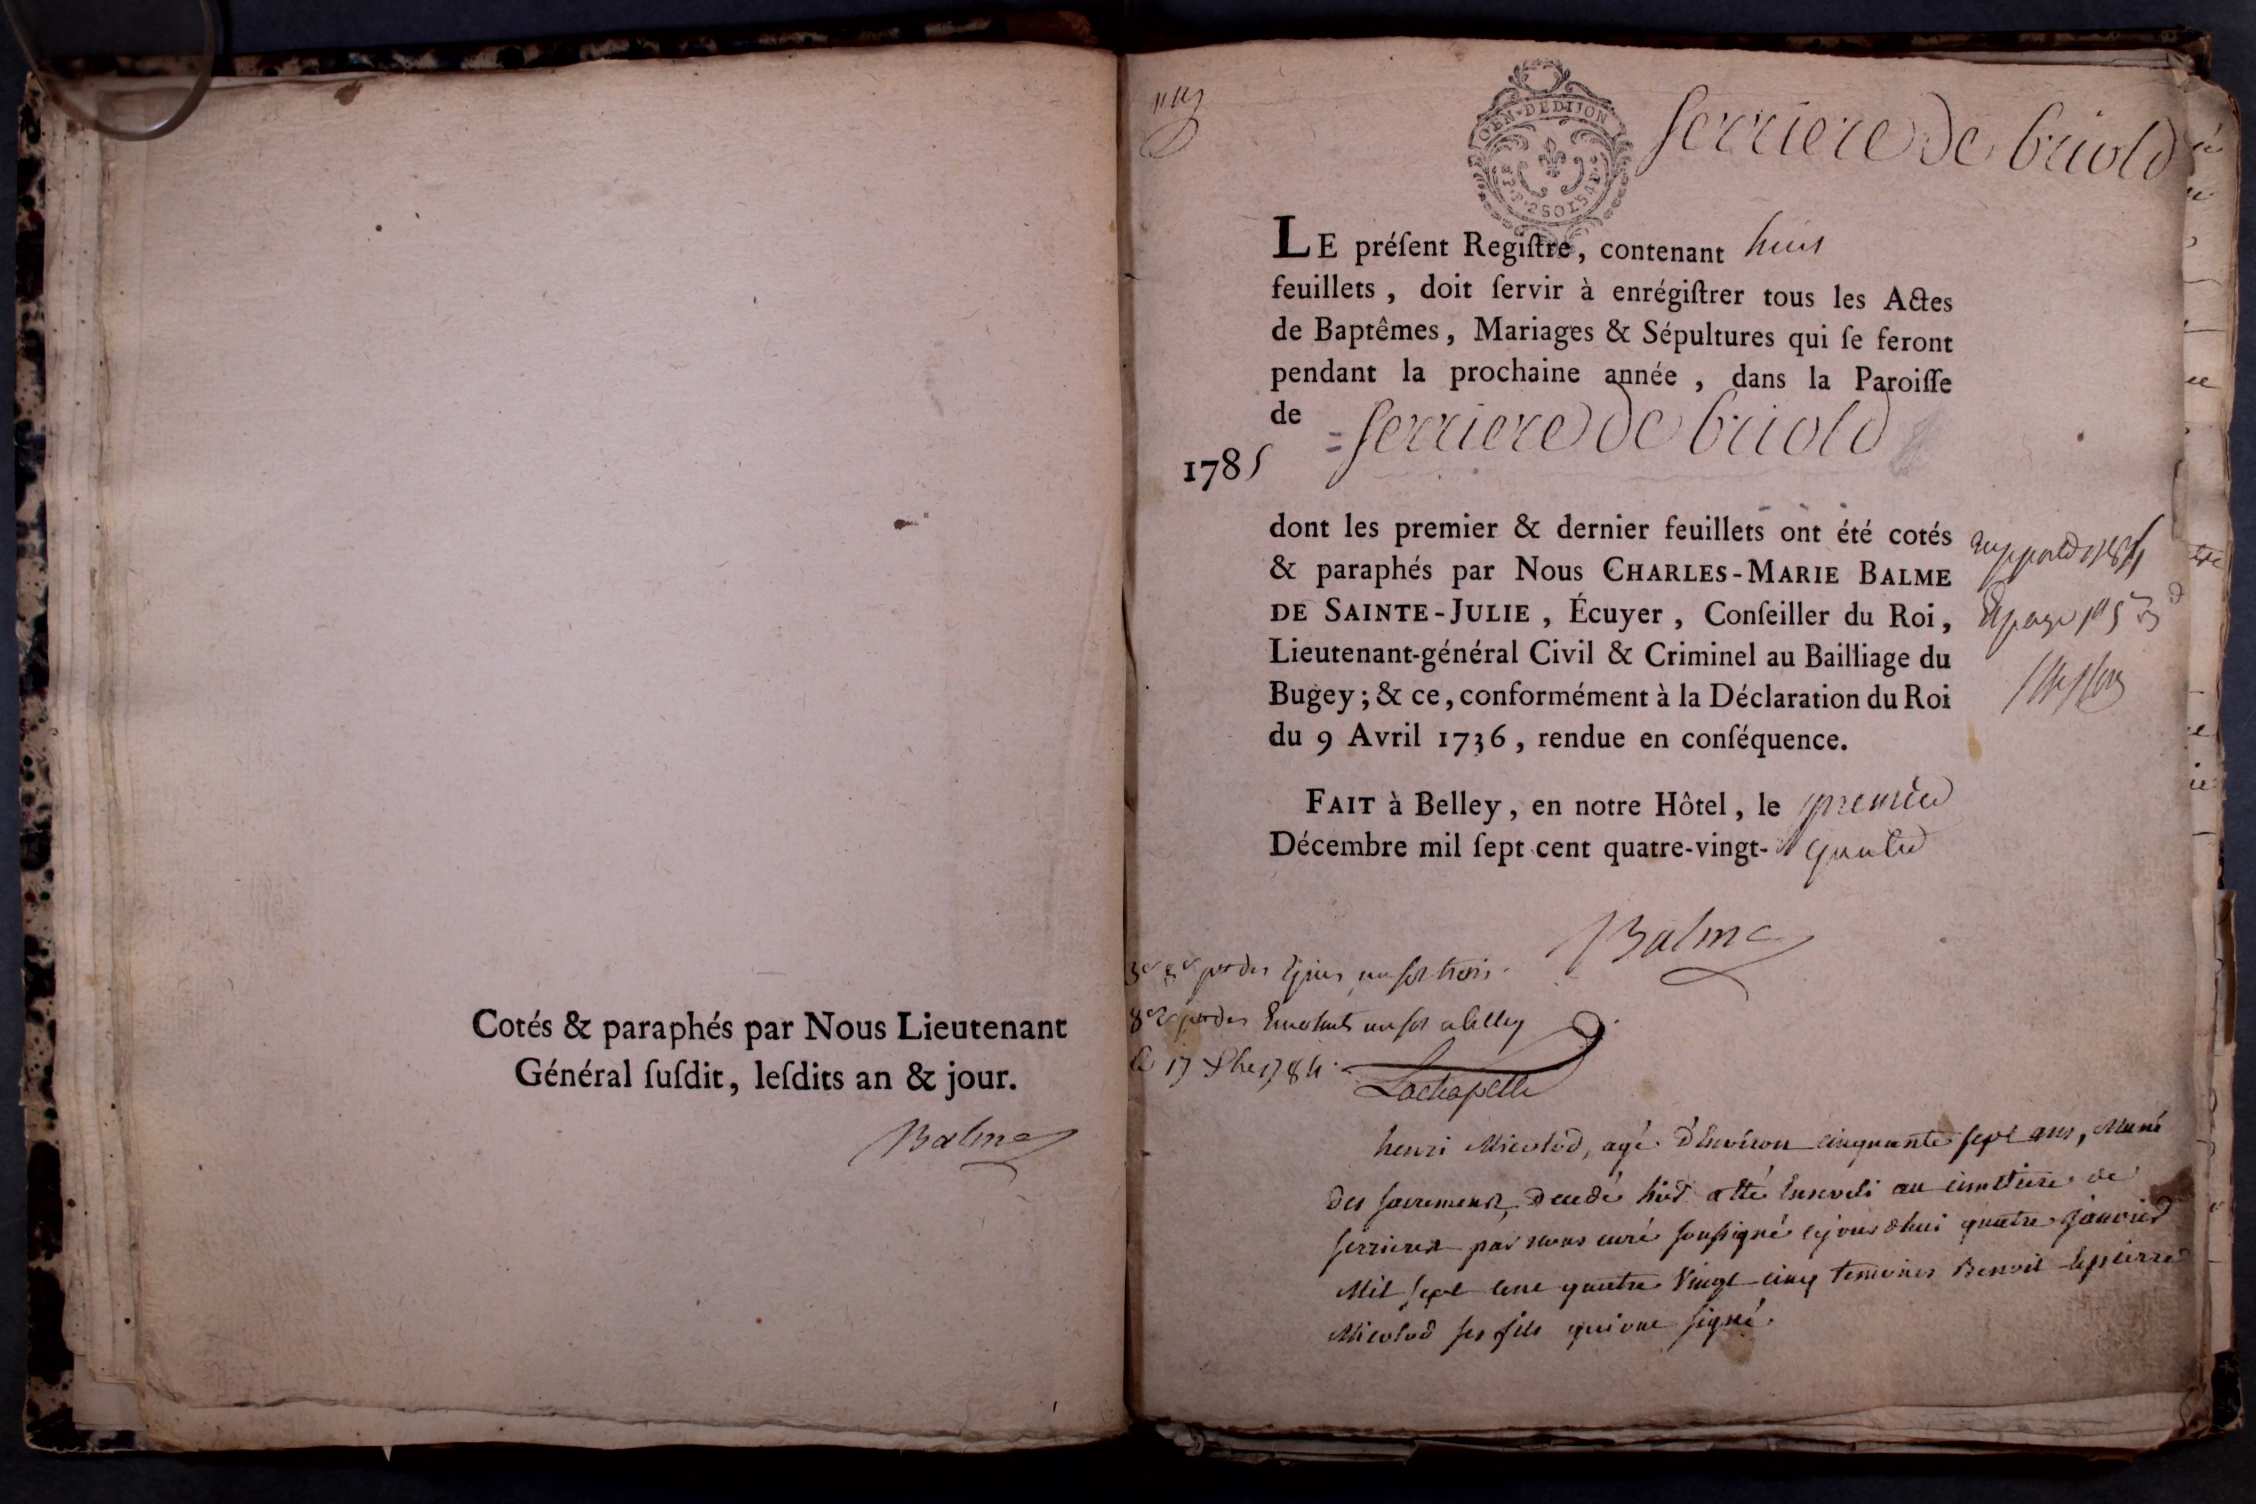 Cotés & paraphés par Nous Lieutenant
Général ſuſdit, leſdits an & jour.
Balme
GEN · DE DIJON
2 SOLS
serriere de briord
LE préſent Regiſtre, contenant huit
feuillets, doit ſervir à enrégiſtrer tous les Actes
de Baptêmes, Mariages & Sépultures qui ſe feront
pendant la prochaine année, dans la Paroiſſe
de serriere de briord
1785
dont les premier & dernier feuillets ont été cotés
& paraphés par Nous CHARLES-MARIE BALME
DE SAINTE-JULIE, Écuyer, Conſeiller du Roi,
Lieutenant-général Civil & Criminel au Bailliage du
Bugey; & ce, conformément à la Déclaration du Roi
du 9 Avril 1736, rendue en conſéquence.
FAIT à Belley, en notre Hôtel, le premier
Décembre mil ſept cent quatre-vingt-quatre
Balme
un sol trois
un sol a belley
le 17 1784
Lachapelle
henri Micolod, agé d'Environ cinquante sept ans, Muni
des sacremens, decedé hier a été Enseveli au cimetiere de
serrieres par nous curé soussigné cejourdhui quatre janvier
Mil sept cent quatre Vingt cinq temoins Benoit et pierre
Micolod ses fils qui ont signé.